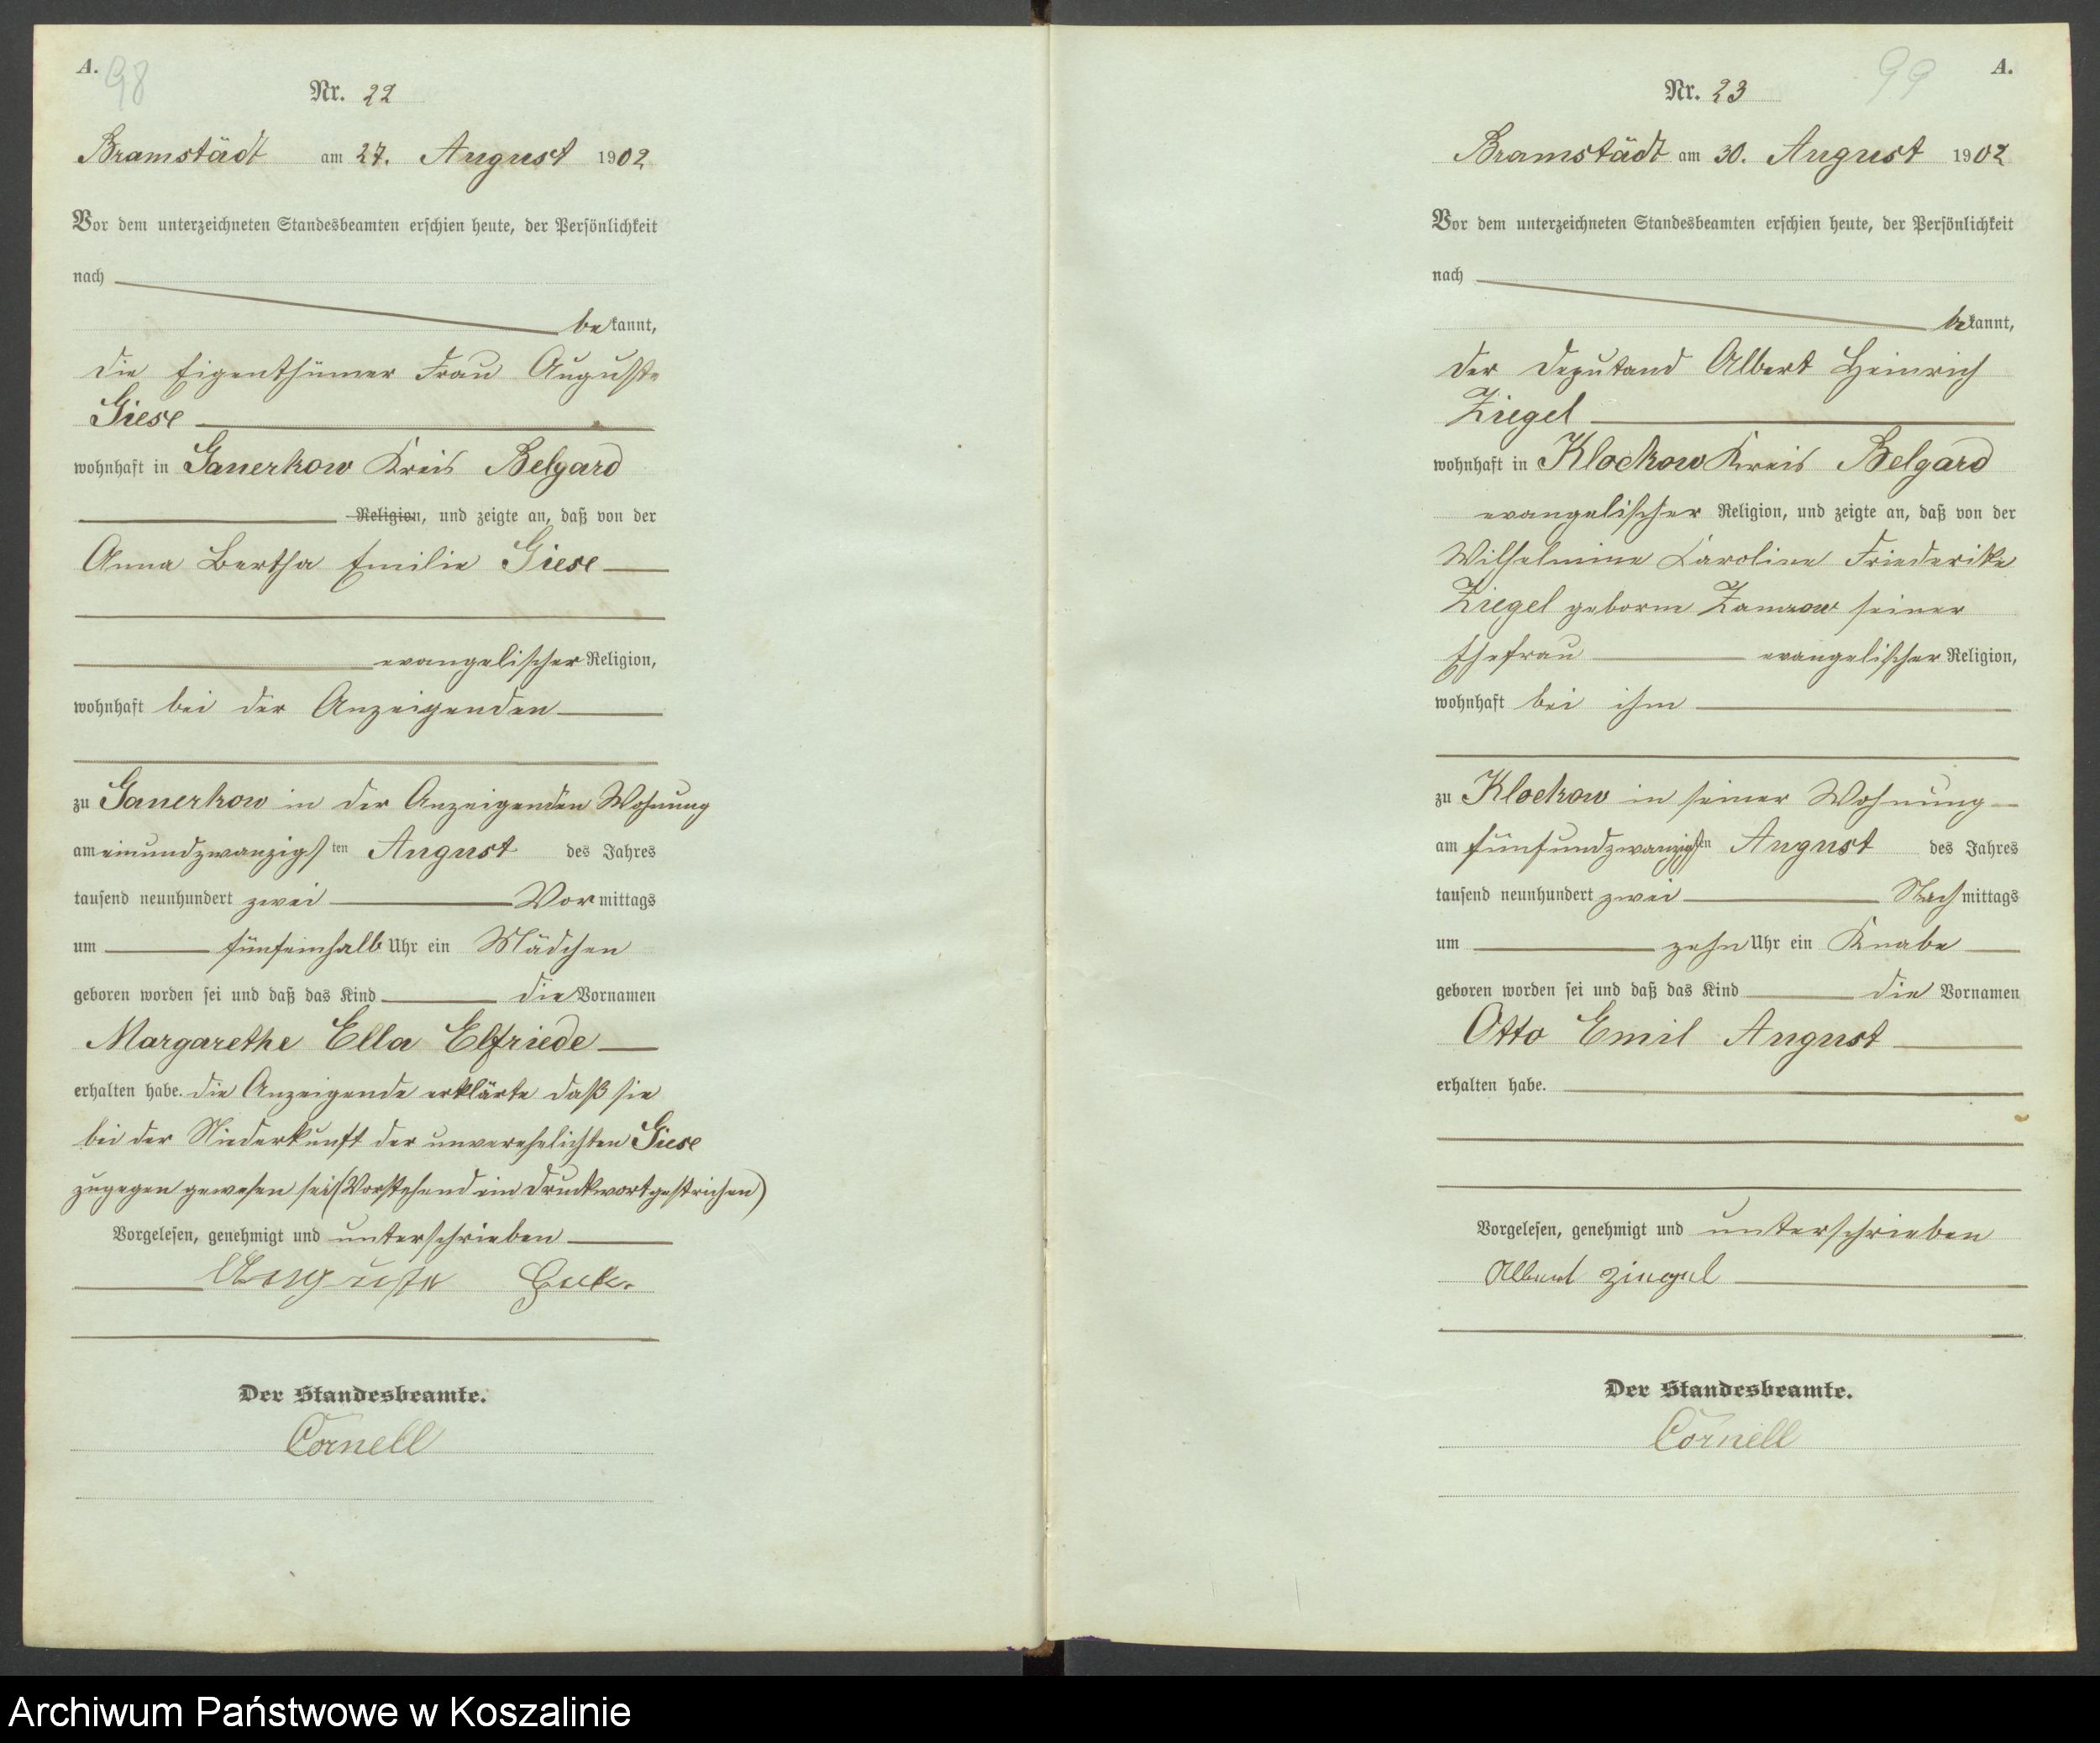 A.
98
Nr. 22
Bramstädt am 27. August 1902
Vor dem unterzeichneten Standesbeamten erschien heute, der Persönlichkeit
nach
bekannt,
die Eigenthümer Frau Auguste
Giese
wohnhaft in Ganerkow Kreis Belgard
Religion, und zeigte an, daß von der
Anna Bertha Emilie Giese
evangelischer Religion,
wohnhaft bei der Anzeigenden
zu Ganerkow in der Anzeigenden Wohnung
am einundzwanzigsten August des Jahres
tausend neunhundert zwei Vormittags
um fünfeinhalb Uhr ein Mädchen
geboren worden sei und daß das Kind die Vornamen
Margarethe Ella Elfriede
erhalten habe. die Anzeigende erklärte daß sie
bei der Niederkunft der unverehelichten Giese
zugegen gewesen sei (Vorstehend ein Druckwort gestrichen)
Vorgelesen, genehmigt und unterschrieben
Auguste
Der Standesbeamte.
Cornell
99
A.
Nr. 23
Bramstädt am 30. August 1902
Vor dem unterzeichneten Standesbeamten erschien heute, der Persönlichkeit
nach
bekannt,
der Deputand Albert Heinrich
Ziegel
wohnhaft in Klockow Kreis Belgard
evangelischer Religion, und zeigte an, daß von der
Wilhelmine Caroline Friederike
Ziegel geborne Zamzow seiner
Ehefrau evangelischer Religion,
wohnhaft bei ihm
zu Klockow in seiner Wohnung
am fünfundzwanzigsten August des Jahres
tausend neunhundert zwei Nachmittags
um zehn Uhr ein Knabe
geboren worden sei und daß das Kind die Vornamen
Otto Emil August
erhalten habe.
Vorgelesen, genehmigt und unterschrieben
Albert Ziegel
Der Standesbeamte.
Cornell
Archiwum Państwowe w Koszalinie